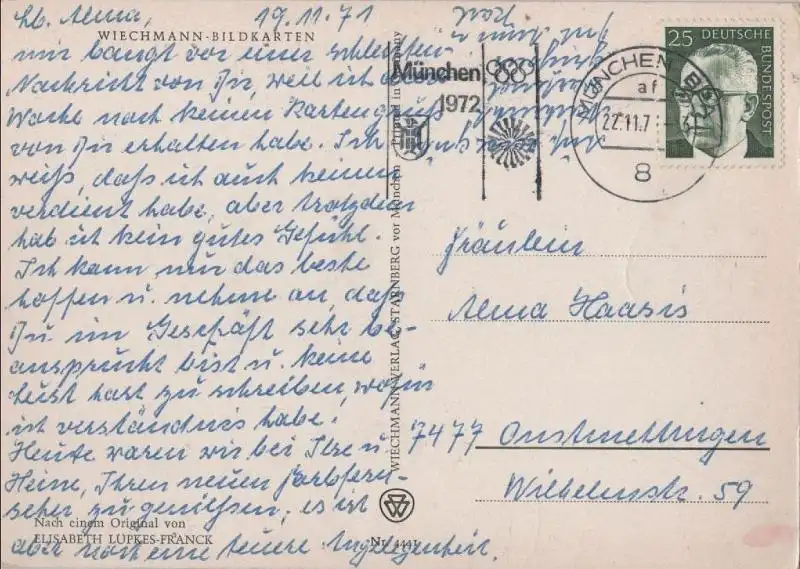 Lb. Alma, 19.11.71
WIECHMANN-BILDKARTEN
mir bangt vor einer schlechten
Nachricht von Dir, weil ich diese
Woche noch keinen Kartengruß
von Dir erhalten habe. Ich
weiß, daß ich auch keinen
verdient habe, aber trotzdem
hab ich kein gutes Gefühl.
Ich kann nur das beste
hoffen u. nehme an, daß
Du im Geschäft sehr be-
ansprucht bist u. keine
Lust hast zu schreiben, wofür
ich verständnis habe!
Heute waren wir bei Ilse u.
Heine, Ihren neuen Farbfern-
seher zu genießen; es ist
aber noch eine teuere Angelegenheit.
Nach einem Original von
ELISABETH LÜPKES-FRANCK
Nr. 4441
WIECHMANN-VERLAG, STARNBERG vor München
Printed in Germany
München
1972
MÜNCHEN
af
22.11.7
8
25 DEUTSCHE
BUNDESPOST
Fräulein
Alma Haasis
7477 Onstmettingen
Wilhelmstr. 59